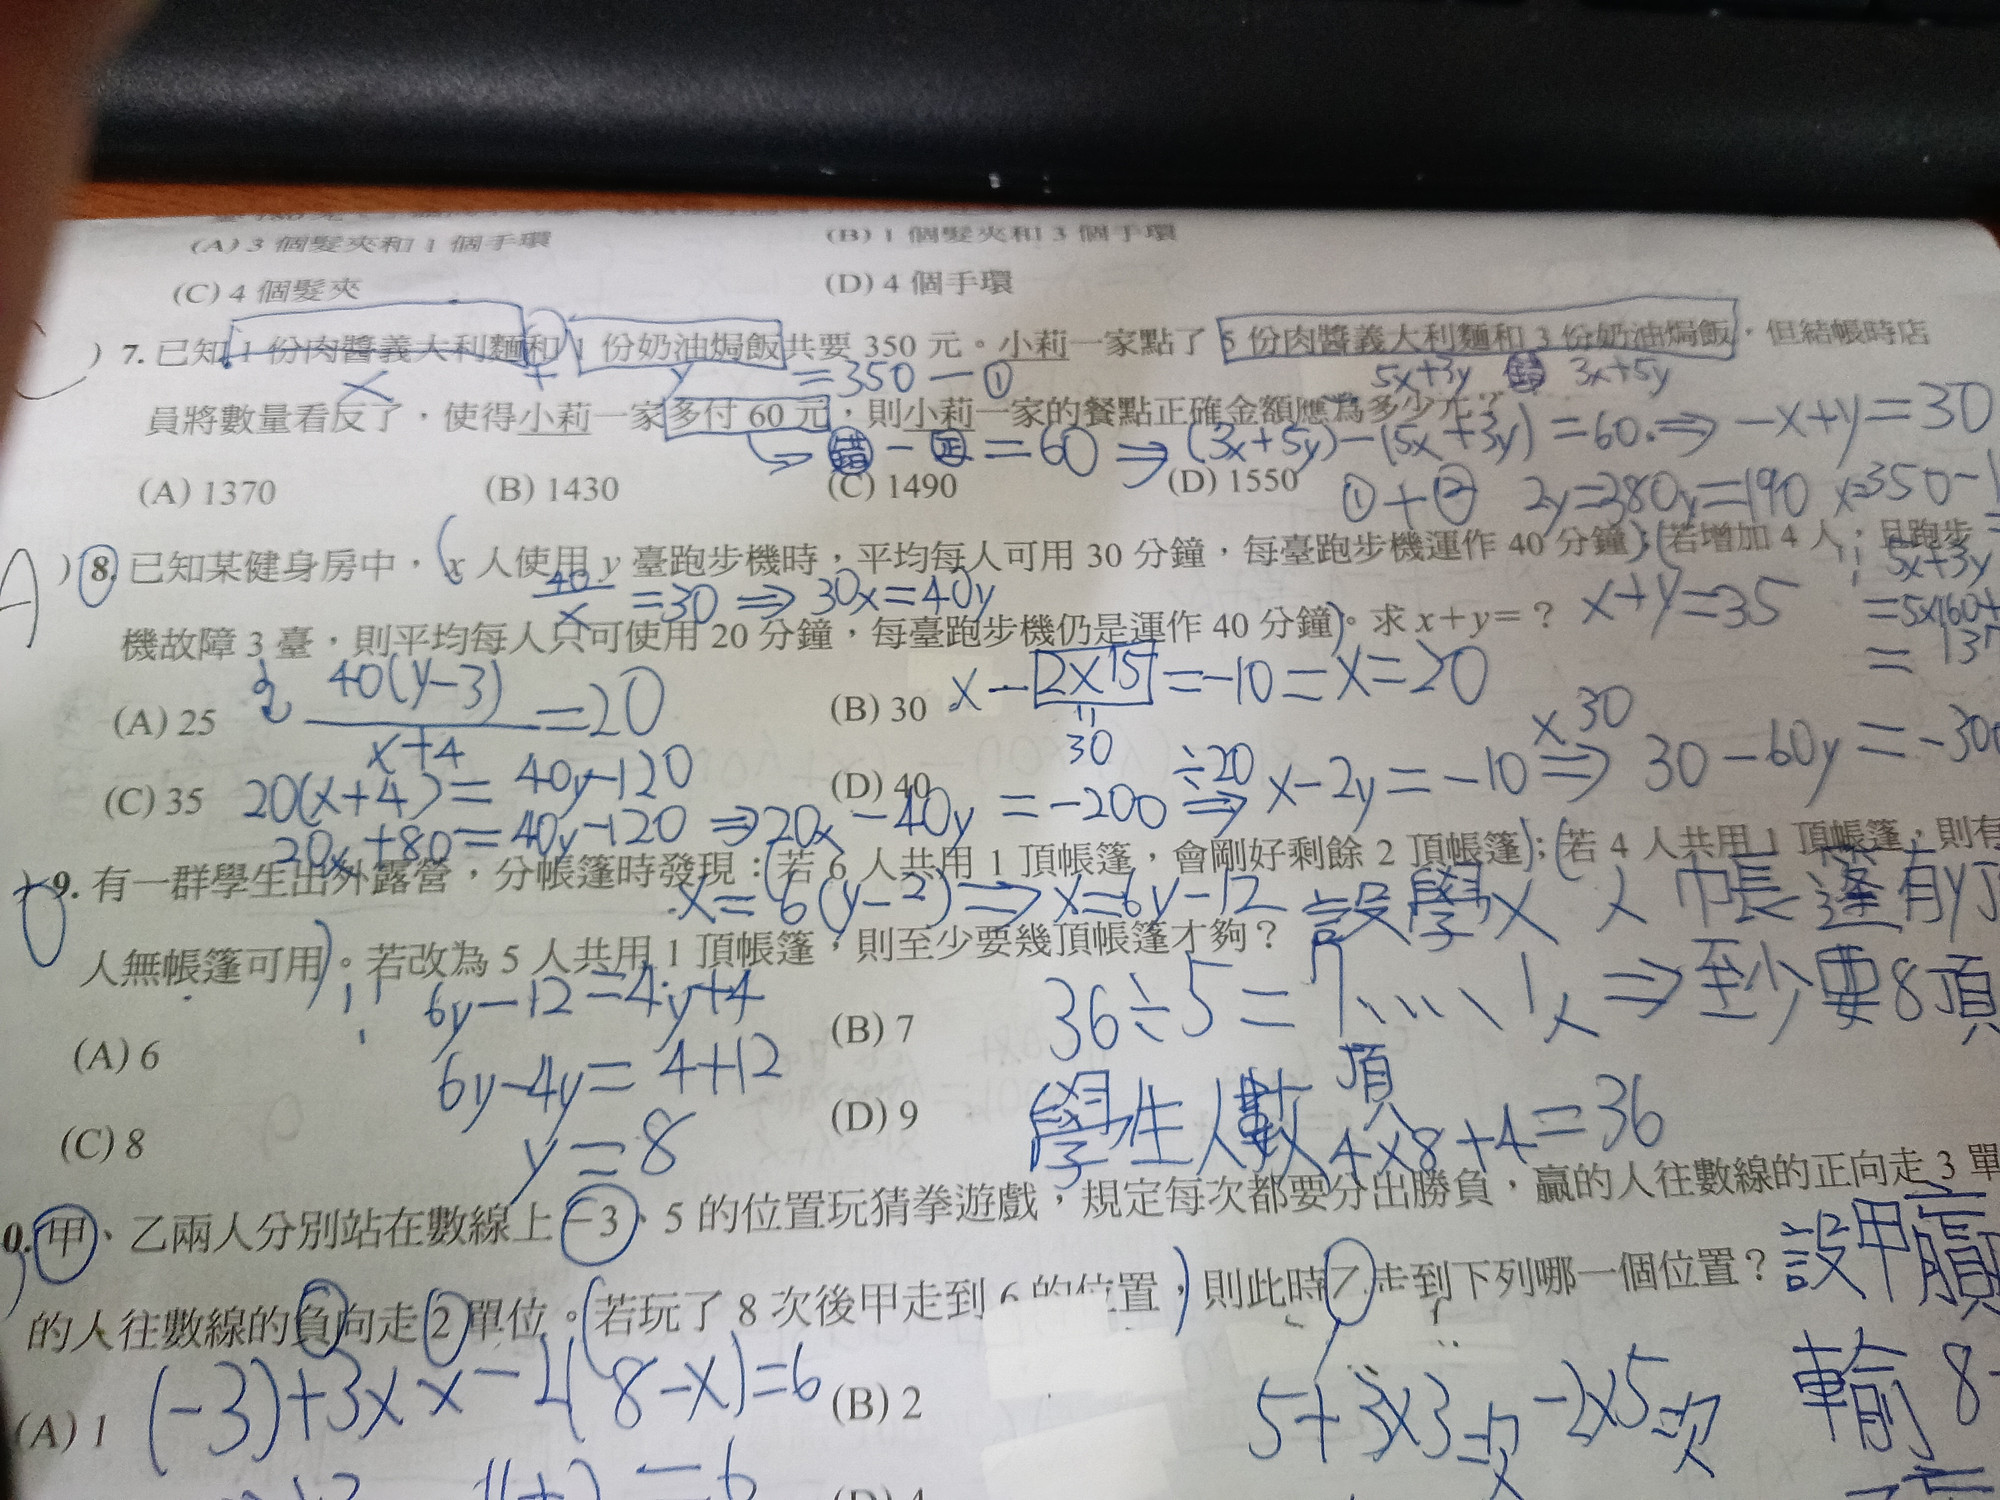 (A) 3 個髮夾和 1 個手環 (B) 1 個髮夾和 3 個手環
(C) 4 個髮夾 (D) 4 個手環
) 7. 已知 1 份肉醬義大利麵和 1 份奶油焗飯共要 350 元。小莉一家點了 5 份肉醬義大利麵和 3 份奶油焗飯,但結帳時店
x + y =350 —① 5x+3y 錯 3x+5y
員將數量看反了,使得小莉一家多付 60 元,則小莉一家的餐點正確金額應為多少元?
錯 - 正 = 60 ⇒ (3x+5y)-(5x+3y)=60 ⇒ -x+y=30
(A) 1370 (B) 1430 (C) 1490 (D) 1550
①+② 2y=380 y=190 x=350-1
A ) 8. 已知某健身房中,x 人使用 y 臺跑步機時,平均每人可用 30 分鐘,每臺跑步機運作 40 分鐘;若增加 4 人,且跑步
5x+3y
=30 ⇒ 30x=40y
機故障 3 臺,則平均每人只可使用 20 分鐘,每臺跑步機仍是運作 40 分鐘。求 x+y=?
x+y=35
=5×160+
= 137
(A) 25 40(y-3)/x+4 =20 (B) 30 x-2×15=-10=x=20
30
(C) 35 20(x+4)=40y-120 (D) 40
20x+80=40y-120 ⇒20x-40y=-200 ÷20 ⇒ x-2y=-10 ×30 ⇒ 30-60y=-300
9. 有一群學生出外露營,分帳篷時發現:若 6 人共用 1 頂帳篷,會剛好剩餘 2 頂帳篷;若 4 人共用 1 頂帳篷,則有
x=6(y-2)⇒x=6y-12 設學x人 帳蓬有y頂
人無帳篷可用。若改為 5 人共用 1 頂帳篷,則至少要幾頂帳篷才夠?
6y-12=4y+4 36÷5=7頂…1人 ⇒至少要8頂
(A) 6 (B) 7
6y-4y=4+12
(C) 8 (D) 9
y=8 學生人數 4×8+4=36
0. 甲、乙兩人分別站在數線上 -3、5 的位置玩猜拳遊戲,規定每次都要分出勝負,贏的人往數線的正向走 3 單
設甲贏
的人往數線的負向走 2 單位。若玩了 8 次後甲走到 6 的位置,則此時乙走到下列哪一個位置?
輸 8-
(A) 1 (-3)+3×x-2(8-x)=6 (B) 2
5+3×3次-2×5次
(D) 4